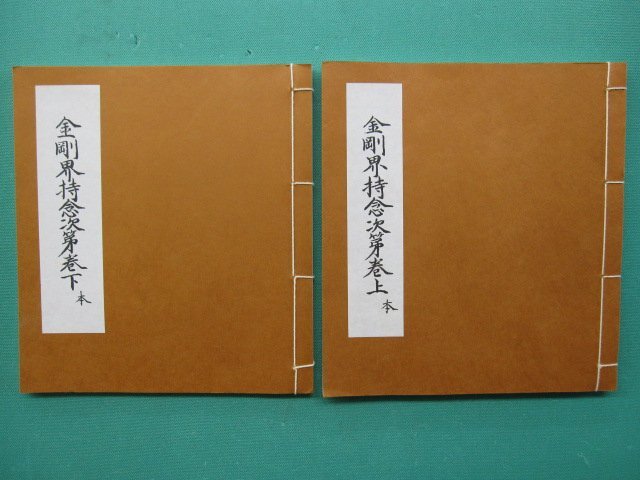 金剛界持念次第巻上
本
金剛界持念次第巻下
本